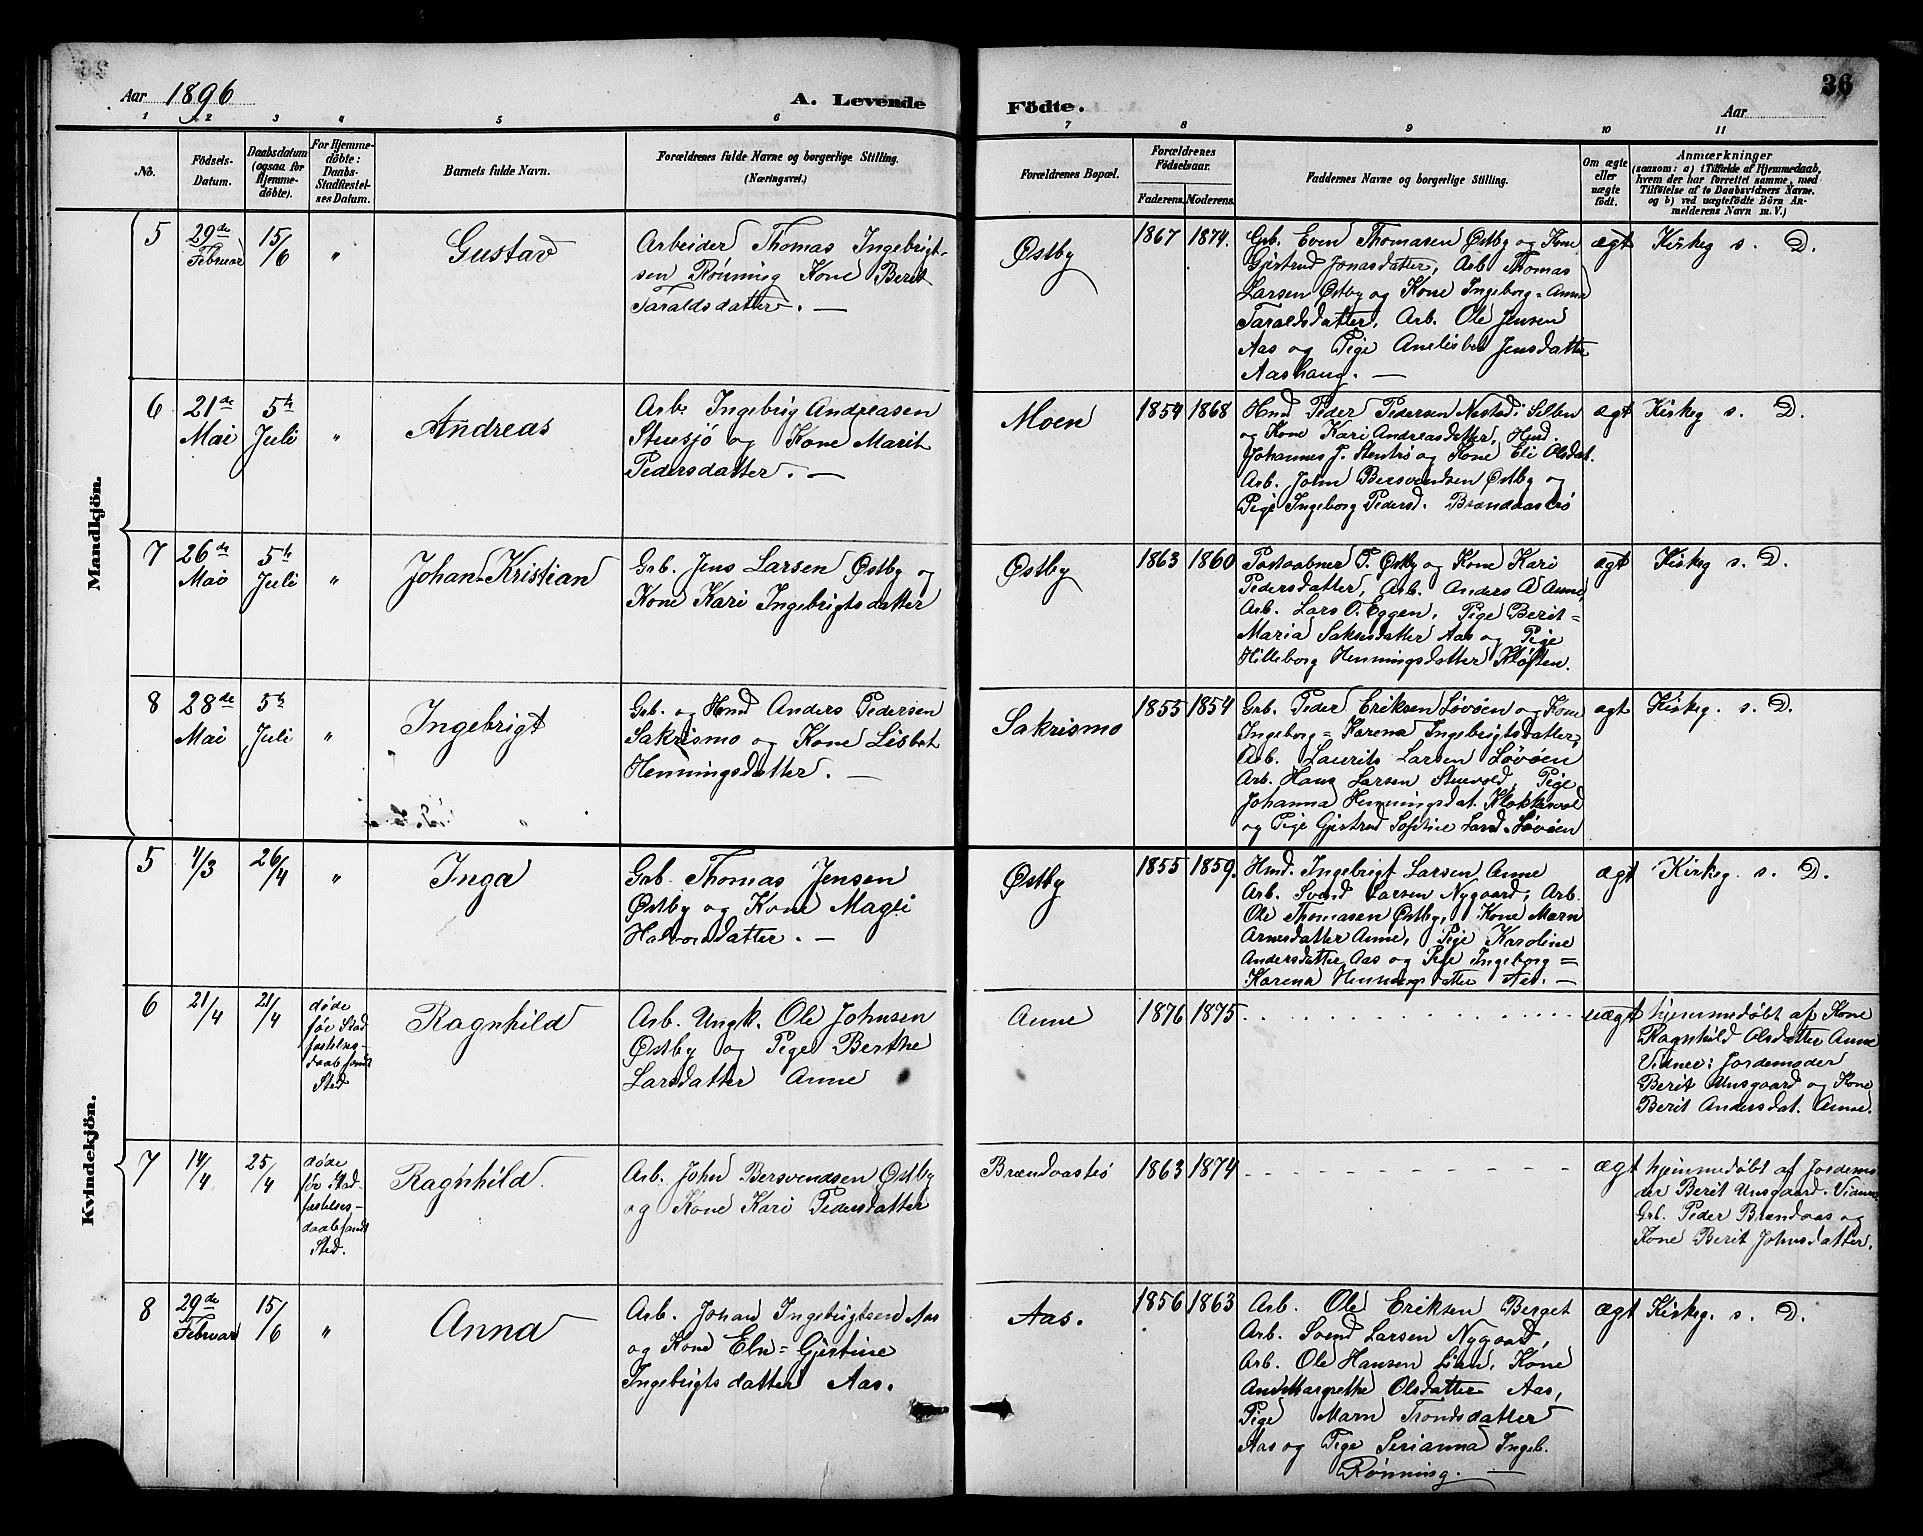 Aar 1896
A. Levende
Födte.
36
Aar
1 2 3 4 5 6 7 8 9 10 11
No.
Födsels-
Datum.
Daabsdatum
(ogsaa for
Hjemme-
döbte).
For Hjemme-
döbte:
Daabs-
Stadfæstel-
ses Datum.
Barnets fulde Navn.
Forældrenes fulde Navne og borgerlige Stilling.
(Næringsvei.)
Forældrenes Bopæl.
Forældrenes
Födselsaar.
Faderens. Moderens.
Faddernes Navne og borgerlige Stilling.
Om ægte
eller
uægte
födt.
Anmærkninger
(saasom: a) i Tilfælde af Hjemmedaab,
hvem der har forrettet samme, med
Tilföielse af to Daabsvidners Navne,
og b) ved uægtefödte Börn An-
melderens Navn m. V.)
Mandkjön.
5
29de
Februar
15/6
"
Gustav
Arbeider Thomas Ingebrigt-
sen Rönning Kone Berit
Taraldsdatter. —
Østby
1867 1874.
Grb. Even Thomasen Østby og Kone
Gjertrud Jonasdatter, Arb Thomas
Larsen Østby og Kone Ingeborg=Anna
Taraldsdatter, Arb. Ole Jensen
Aas og Pige Anelisbet Jensdatter
Aashaug. —
ægt
Kirkeg s. D.
6
21de
Mai
5te
Juli
"
Andreas
Arb. Ingebrig Andreasen
Stensjø og Kone Marit
Pedersdatter. —
Moen
1854 1868
Hmd Peder Pedersen Nestad i Selbu
og Kone Kari Andreasdatter, Hmd.
Johannes J. Stentrø og Kone Eli Olsdat.
Arb. John Bersvendsen Østby og
Pige Ingeborg Pedersd. Brændaastrø
ægt
Kirkeg s. D.
7
26de
Mai
5te
Juli
"
Johan-Kristian
Grb. Jens Larsen Østby og
Kone Kari Ingebrigtsdatter
Østby
1863 1860
Postaabner T. Østby og Kone Kari
Pedersdatter, Arb. Anders A Aune,
Arb. Lars O. Eggen, Pige Berit=
Maria Saksesdatter Aas og Pige
Hilleborg Henningsdatter Kløften.
ægt
Kirkeg s. D.
8
28de
Mai
5te
Juli
"
Ingebrigt
Grb. og Hmd Anders Pedersen
Sakrismo og Kone Lisbet
Henningsdatter. —
Sakrismo
1855 1854
Grb. Peder Eriksen Løvøen og Kone
Ingeborg=Karena Ingebrigtsdatter,
Arb. Laurits Larsen Løvøen
Arb. Hans Larsen Stuevold, Pige
Johanna Henningsdat. Klokkervold
og Pige Gjertrud Sofstine Larsd. Løvøen
ægt
Kirkeg. s. D.
Kvindekjön.
5
1/3
26/4
"
Inga
Grb. Thomas Jensen
Østby og Kone Magli
Halvorsdatter. —
Østby
1855 1859.
Hmd. Ingebrigt Larsen Aune
Arb. Svend Larsen Nygaard, Arb.
Ole Thomasen Østby, Kone Marn
Arnesdatter Aune, Pige Karoline
Andersdatter Aas og Pige Ingeborg=
Karena Henningsdatter Aas. —
ægt
Kirkeg. s. D.
6
21/4
21/4
døde
før Stad
fæstelses-
daab fandt
Sted
Ragnhild
Arb. Ungk. Ole Johnsen
Østby og Pige Berthe
Larsdatter Aune
Aune
1876 1875
uægt
hjemmedøbt af Kone
Ragnhild Olsdatter Aune
Vidner: Jordemoder
Berit Unsgaard og Kone
Berit Andersdat. Aune.
7
14/4
25/4
døde
før Stad-
fæstelses-
daab fandt
Sted.
Ragnhild
Arb. John Bersvendsen Østby
og Kone Kari Pedersdatter
Brændaastrø
1863 1874
ægt
hjemmedøbt af Jordemo-
der Berit Unsgaard. Vidner
Grb. Peder Brændaas og
Kone Berit Johnsdatter.
8
29de
Februar
15/6
"
Anna
Arb. Johan Ingebrigtsen Aas
og Kone Eln=Gjertine
Ingebrigtsdatter Aas.
Aas.
1856 1863
Arb. Ole Eriksen Berget
Arb. Svend Larsen Nygaard,
Arb. Ole Hansen Lian, Kone
AneMargrethe Olsdatter Aas,
Pige Marn Trondsdatter
Aas og Pige Serianna Ingeb.
Rønning. —
ægt
Kirkeg. s. D.